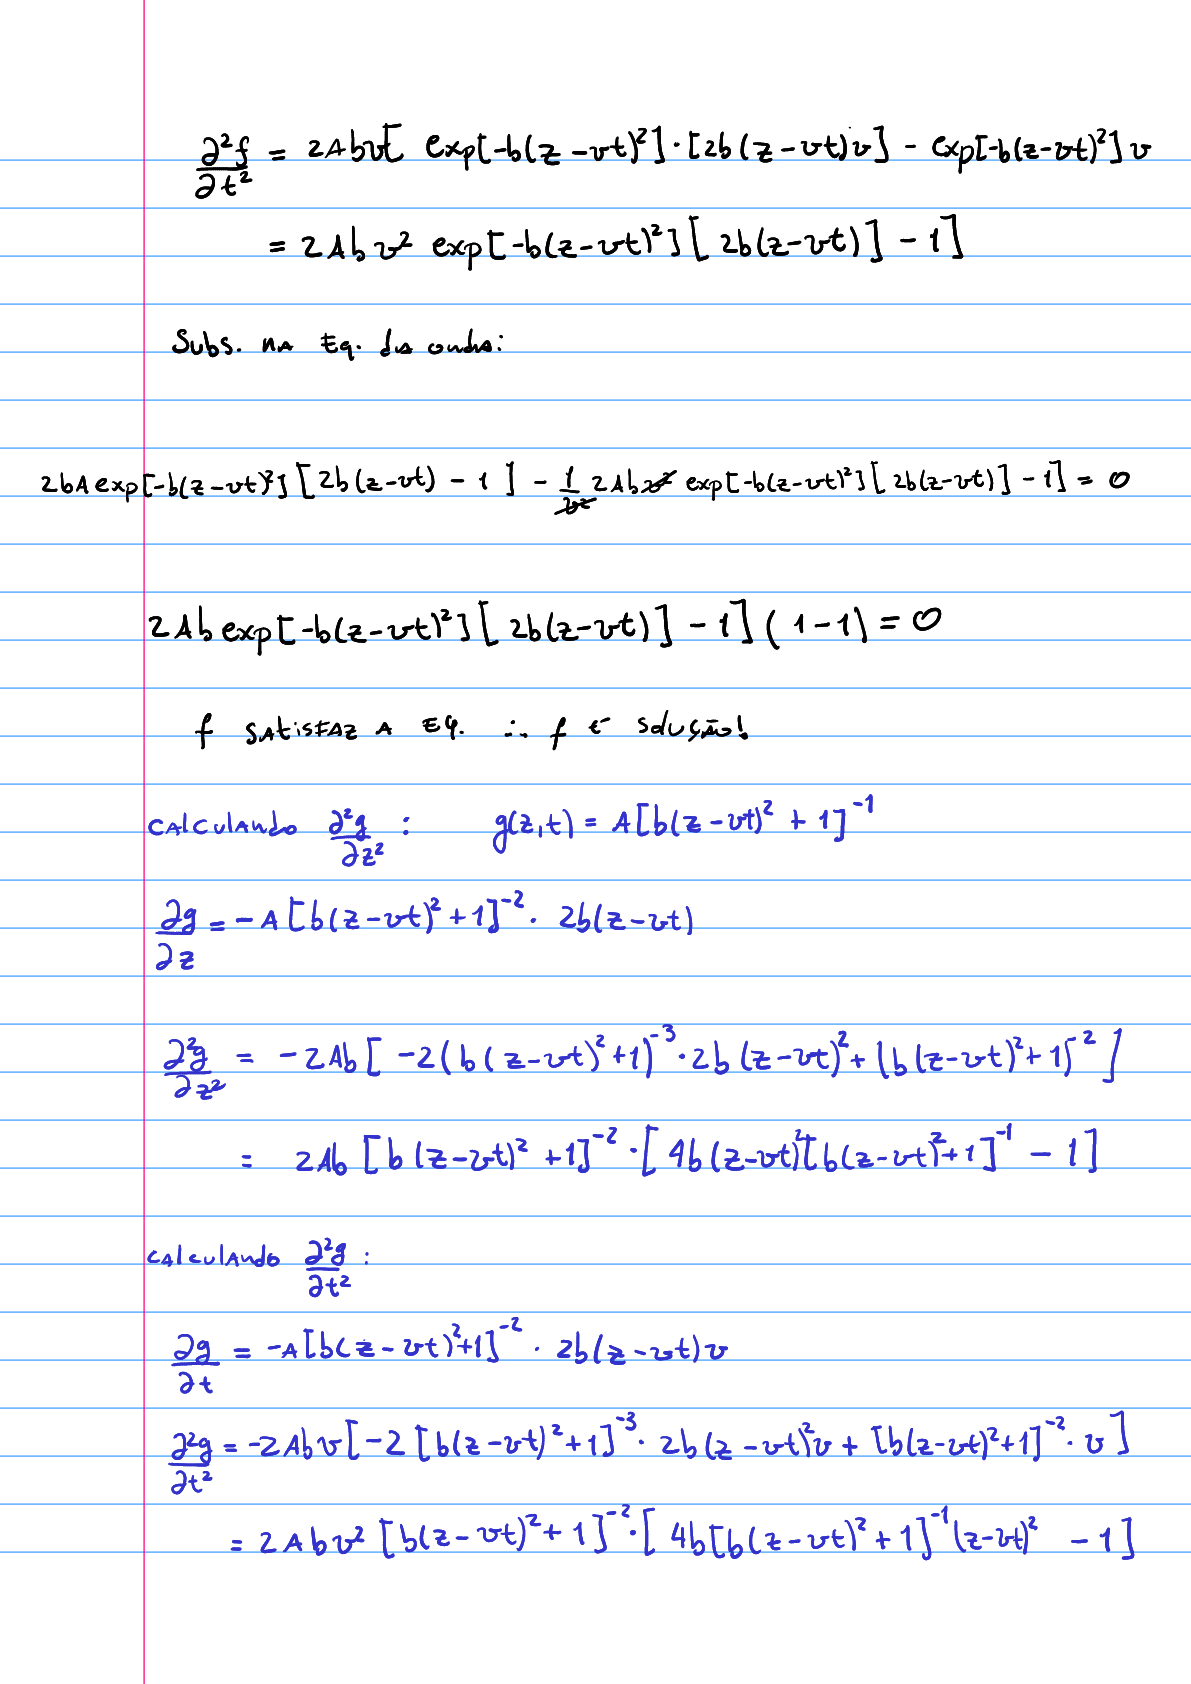 ∂²f/∂t² = 2Abv[ exp[-b(z-vt)²]·[2b(z-vt)v] - exp[-b(z-vt)²]v
= 2Abv² exp[-b(z-vt)²][2b(z-vt)] - 1]
Subs. na Eq. da onda:
2bA exp[-b(z-vt)²][2b(z-vt) - 1] - 1/v² 2Abv² exp[-b(z-vt)²][2b(z-vt)] - 1] = 0
2Ab exp[-b(z-vt)²][2b(z-vt)] - 1](1-1) = 0
f satisfaz a Eq. ∴ f é solução!
Calculando ∂²g/∂z² : g(z,t) = A[b(z-vt)² + 1]⁻¹
∂g/∂z = -A[b(z-vt)²+1]⁻² · 2b(z-vt)
∂²g/∂z² = -2Ab[ -2(b(z-vt)²+1)⁻³ · 2b(z-vt)² + (b(z-vt)²+1)⁻² ]
= 2Ab [b(z-vt)² +1]⁻² · [4b(z-vt)²[b(z-vt)²+1]⁻¹ - 1]
Calculando ∂²g/∂t² :
∂g/∂t = -A[b(z-vt)²+1]⁻² · 2b(z-vt)v
∂²g/∂t² = -2Abv[-2[b(z-vt)²+1]⁻³ · 2b(z-vt)²v + [b(z-vt)²+1]⁻² · v]
= 2Abv² [b(z-vt)²+1]⁻² · [4b[b(z-vt)²+1]⁻¹(z-vt)² - 1]